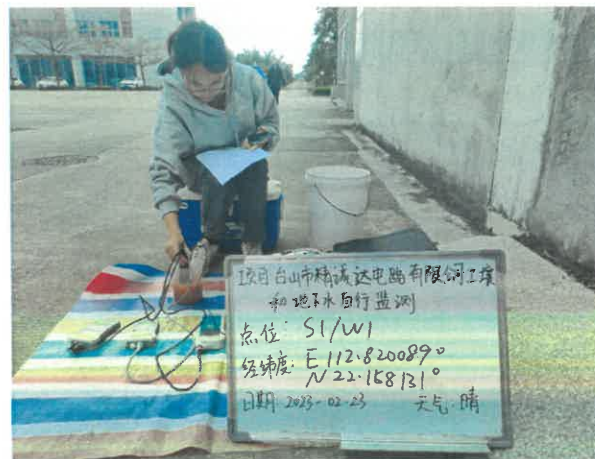 项目台山市精诚达电路有限公司土壤
和地下水自行监测
点位: S1/W1
经纬度: E 112.820089°
N 22.158131°
日期 2023-02-23 天气: 晴